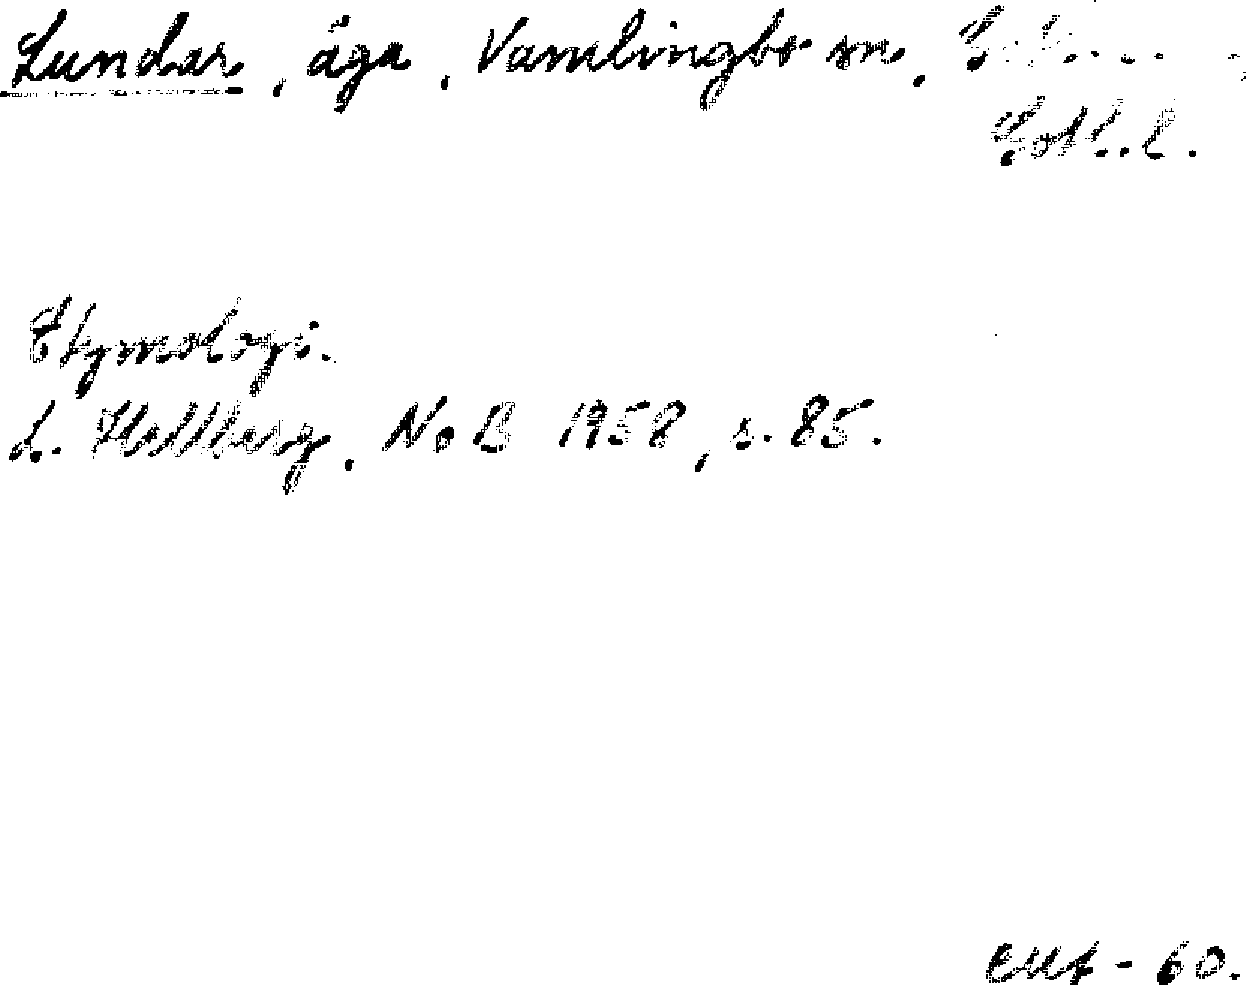 Lundar, äga, Vamlingbo sn,
Gotl. l.
Etymologi.
L. Hellberg, NoB 1958, s. 85.
EUf - 60.